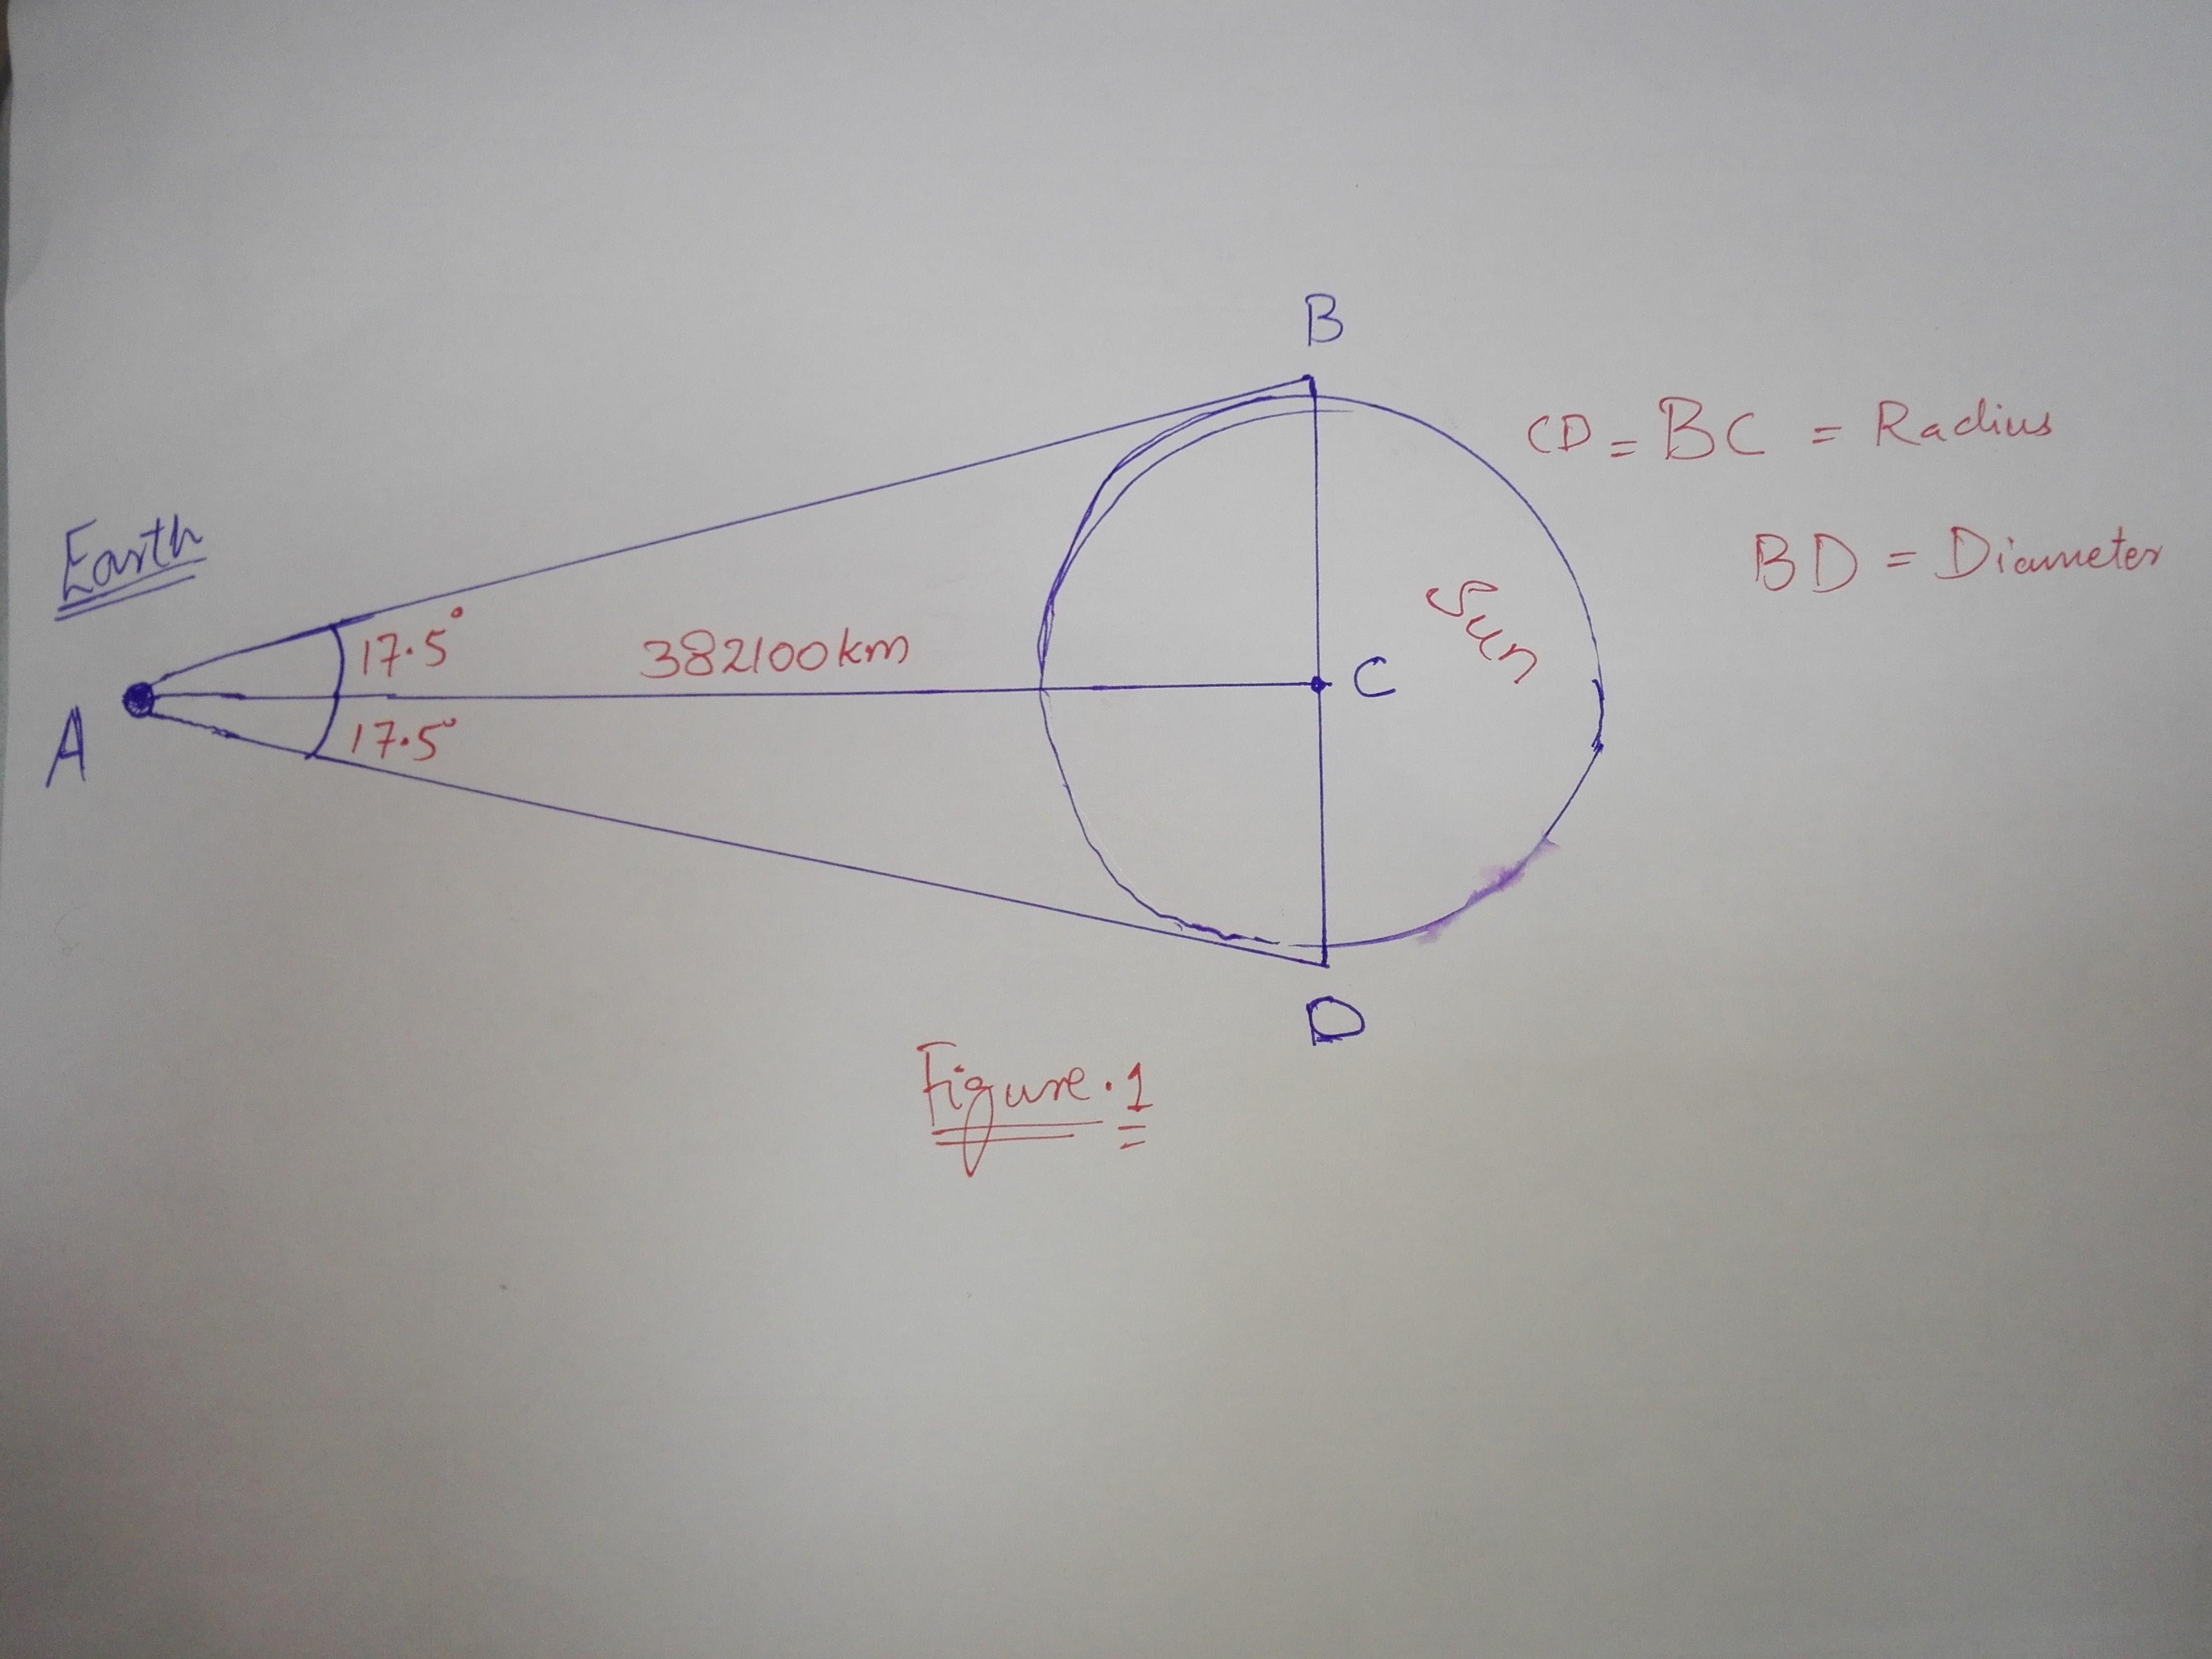 B
CD = BC = Radius
BD = Diameter
Earth
Sun
17.5°
382100km
C
A
17.5°
D
Figure.1